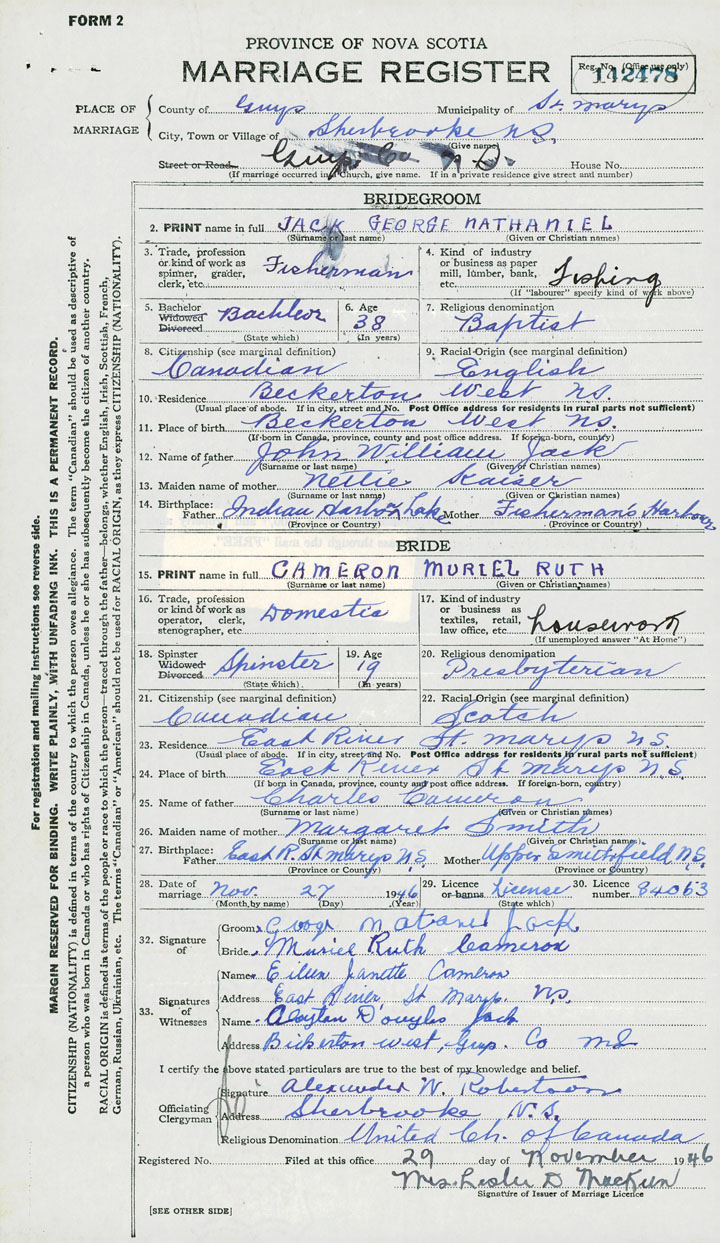 FORM 2
PROVINCE OF NOVA SCOTIA
MARRIAGE REGISTER
Reg. No. (Office use only)
142478
PLACE OF MARRIAGE
County of Guys Municipality of St. Marys
City, Town or Village of Sherbrooke N.S.
(Give name)
Street or Road Guys Co N.S. House No.
(If marriage occurred in Church, give name. If in a private residence give street and number)
BRIDEGROOM
2. PRINT name in full JACK GEORGE NATHANIEL
(Surname or last name) (Given or Christian names)
3. Trade, profession or kind of work as spinner, grader, clerk, etc. Fisherman
4. Kind of industry or business as paper mill, lumber, bank, etc. Fishing
(If "labourer" specify kind of work above)
5. Bachelor Widowed Divorced Bachleor
(State which)
6. Age 38
(In years)
7. Religious denomination Baptist
8. Citizenship (see marginal definition) Canadian
9. Racial Origin (see marginal definition) English
10. Residence Beckerton West N.S.
(Usual place of abode. If in city, street and No. Post Office address for residents in rural parts not sufficient)
11. Place of birth Beckerton West N.S.
(If born in Canada, province, county and post office address. If foreign-born, country)
12. Name of father John William Jack
(Surname or last name) (Given or Christian names)
13. Maiden name of mother Nettie Kaiser
(Surname or last name) (Given or Christian names)
14. Birthplace: Father Indian Harbor Lake Mother Fisherman's Harbour
(Province or Country) (Province or Country)
BRIDE
15. PRINT name in full CAMERON MURIEL RUTH
(Surname or last name) (Given or Christian names)
16. Trade, profession or kind of work as operator, clerk, stenographer, etc. Domestic
17. Kind of industry or business as textiles, retail, law office, etc. housework
(If unemployed answer "At Home")
18. Spinster Widowed Divorced Spinster
(State which)
19. Age 19
(In years)
20. Religious denomination Presbyterian
21. Citizenship (see marginal definition) Canadian
22. Racial Origin (see marginal definition) Scotch
23. Residence East River St Marys N.S.
(Usual place of abode. If in city, street and No. Post Office address for residents in rural parts not sufficient)
24. Place of birth East River St Marys N.S.
(If born in Canada, province, county and post office address. If foreign-born, country)
25. Name of father Charles Cameron
(Surname or last name) (Given or Christian names)
26. Maiden name of mother Margaret Smith
(Surname or last name) (Given or Christian names)
27. Birthplace: Father East R. St Marys N.S. Mother Upper Smithfield N.S.
(Province or Country) (Province or Country)
28. Date of marriage Nov. 27 1946
(Month, by name) (Day) (Year)
29. Licence or banns License
(State which)
30. Licence number 84063
32. Signature of
Groom Jack
Bride Muriel Ruth Cameron
33. Signatures of Witnesses
Name Eileen Janette Cameron
Address East River, St Marys. N.S.
Name Douglas Jack
Address Bickerton west, Guys. Co
I certify the above stated particulars are true to the best of my knowledge and belief.
Officiating Clergyman
Signature Alexander W. Robertson
Address Sherbrooke N.S.
Religious Denomination United Ch. of Canada
Registered No. Filed at this office 29 day of November 1946
Mrs. Leslie D
Signature of Issuer of Marriage Licence
[SEE OTHER SIDE]
For registration and mailing instructions see reverse side.
MARGIN RESERVED FOR BINDING. WRITE PLAINLY, WITH UNFADING INK. THIS IS A PERMANENT RECORD.
CITIZENSHIP (NATIONALITY) is defined in terms of the country to which the person owes allegiance. The term "Canadian" should be used as descriptive of
a person who was born in Canada or who has rights of Citizenship in Canada, unless he or she has subsequently become the citizen of another country.
RACIAL ORIGIN is defined in terms of the people or race to which the person—traced through the father—belongs, whether English, Irish, Scottish, French,
German, Russian, Ukrainian, etc. The terms "Canadian" or "American" should not be used for RACIAL ORIGIN, as they express CITIZENSHIP (NATIONALITY).